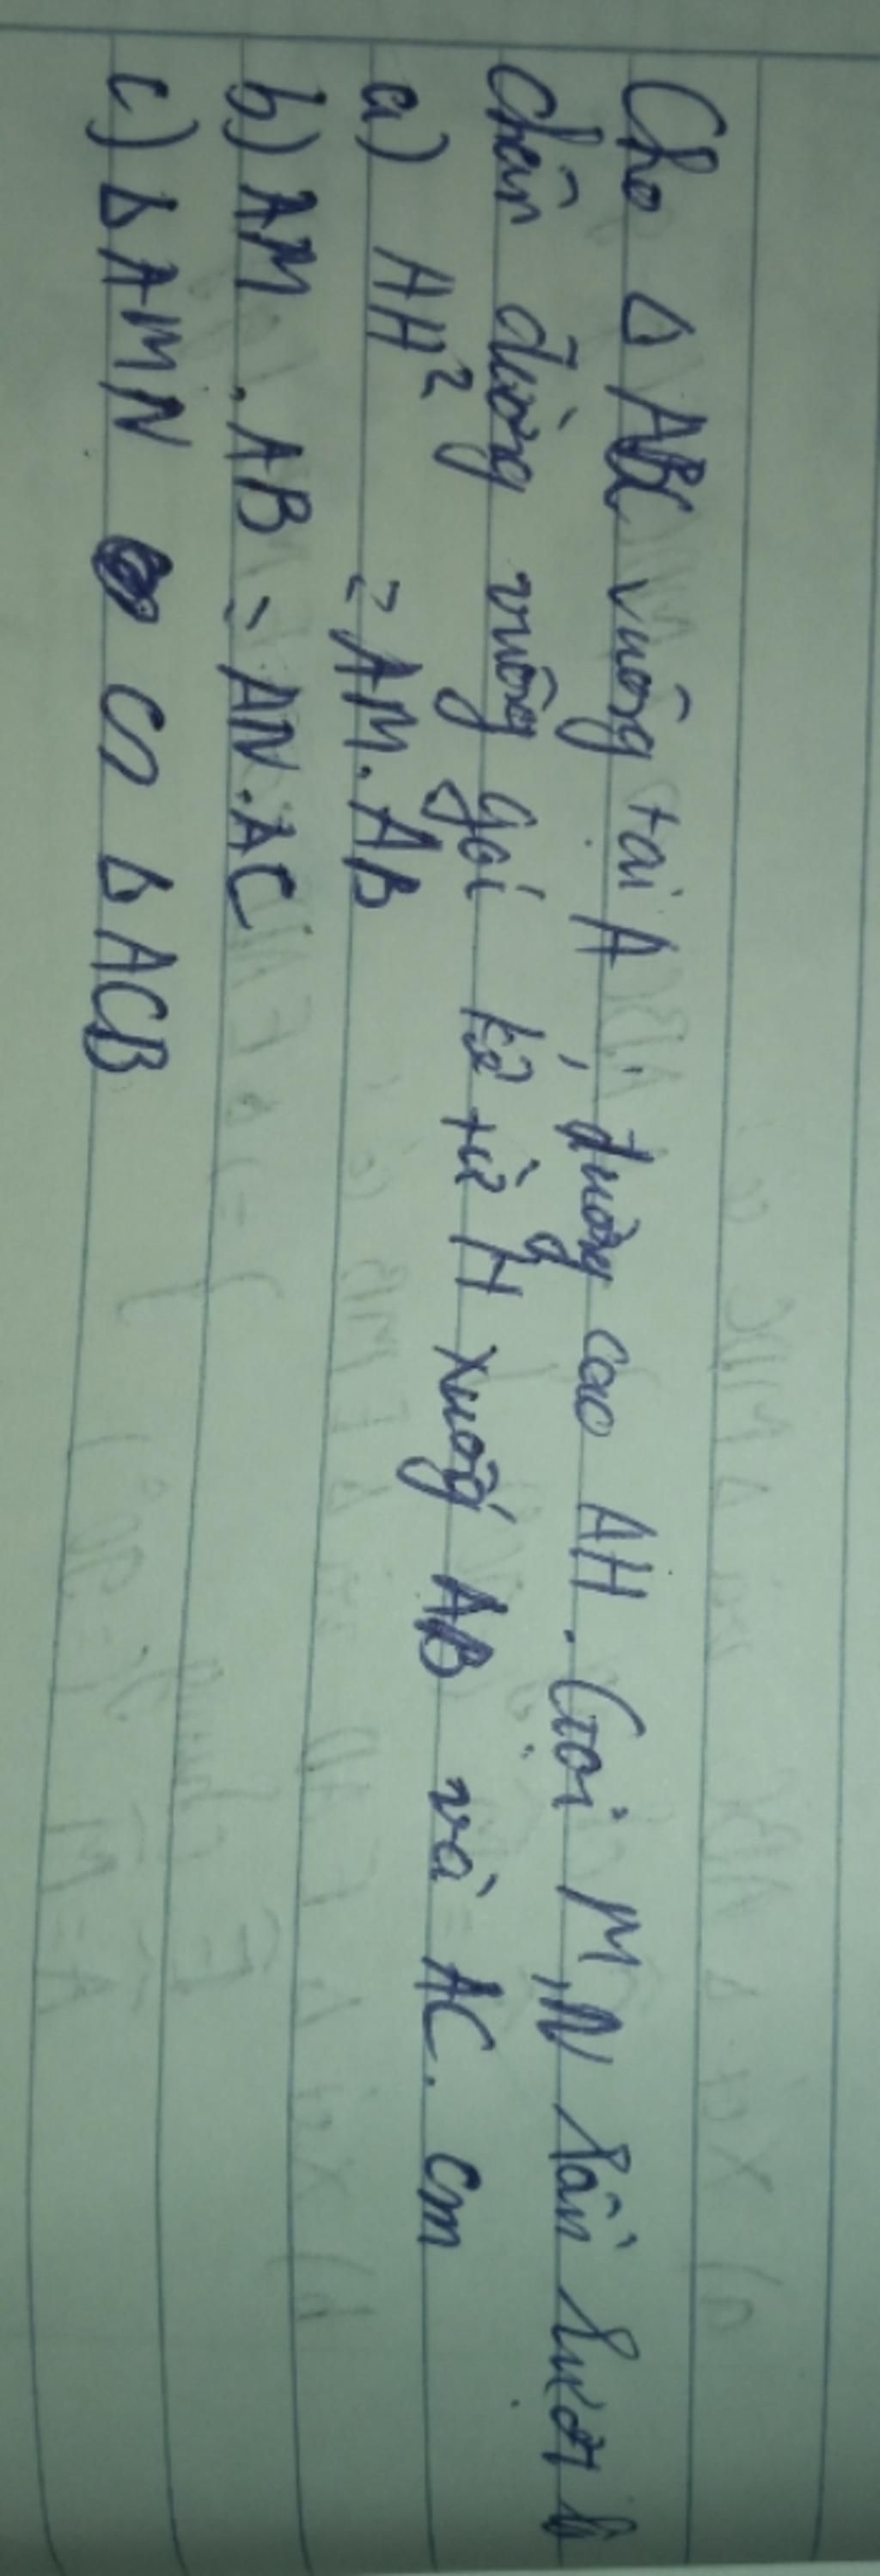 Cho Δ ABC vuông tại A, đường cao AH. Gọi M, N lần lượt là
chân đường vuông gói kẻ từ H xuống AB và AC. cm
a) AH² = AM.AB
b) AM . AB = AN.AC
c) Δ AMN ∽ Δ ACB